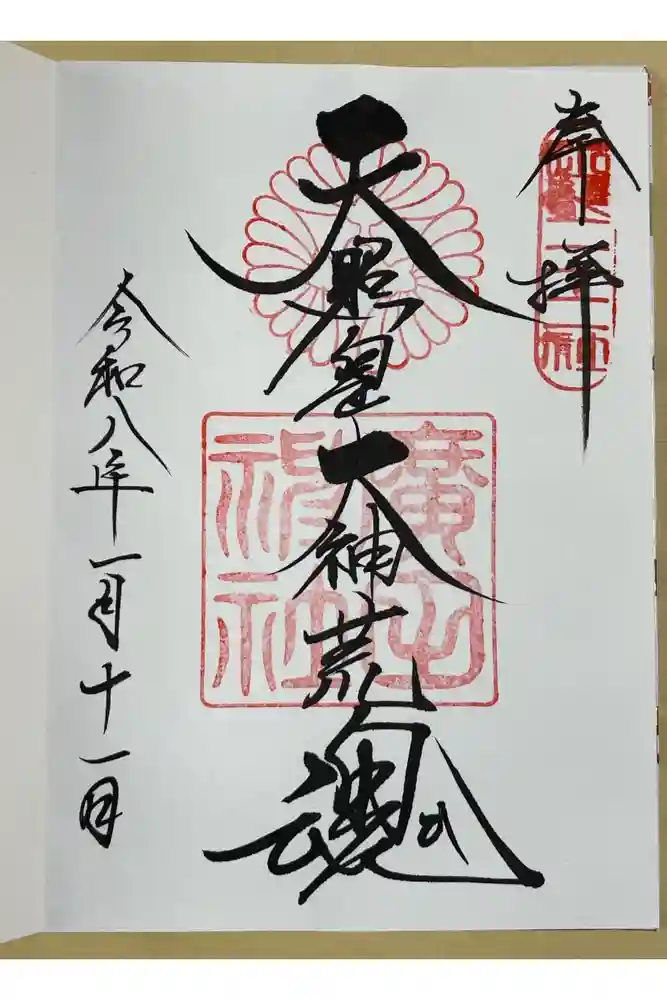 奉拝
天照皇大神荒魂
廣田
神社
令和八年一月十一日